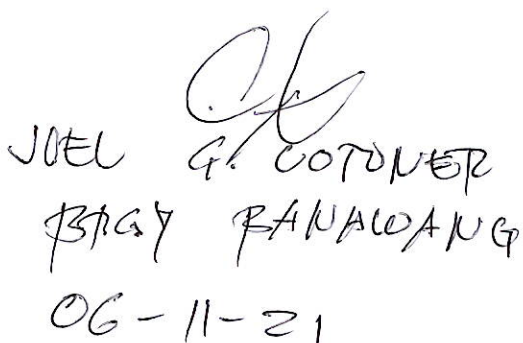 JOEL G. COTONER
BRGY BANAWANG
06-11-21